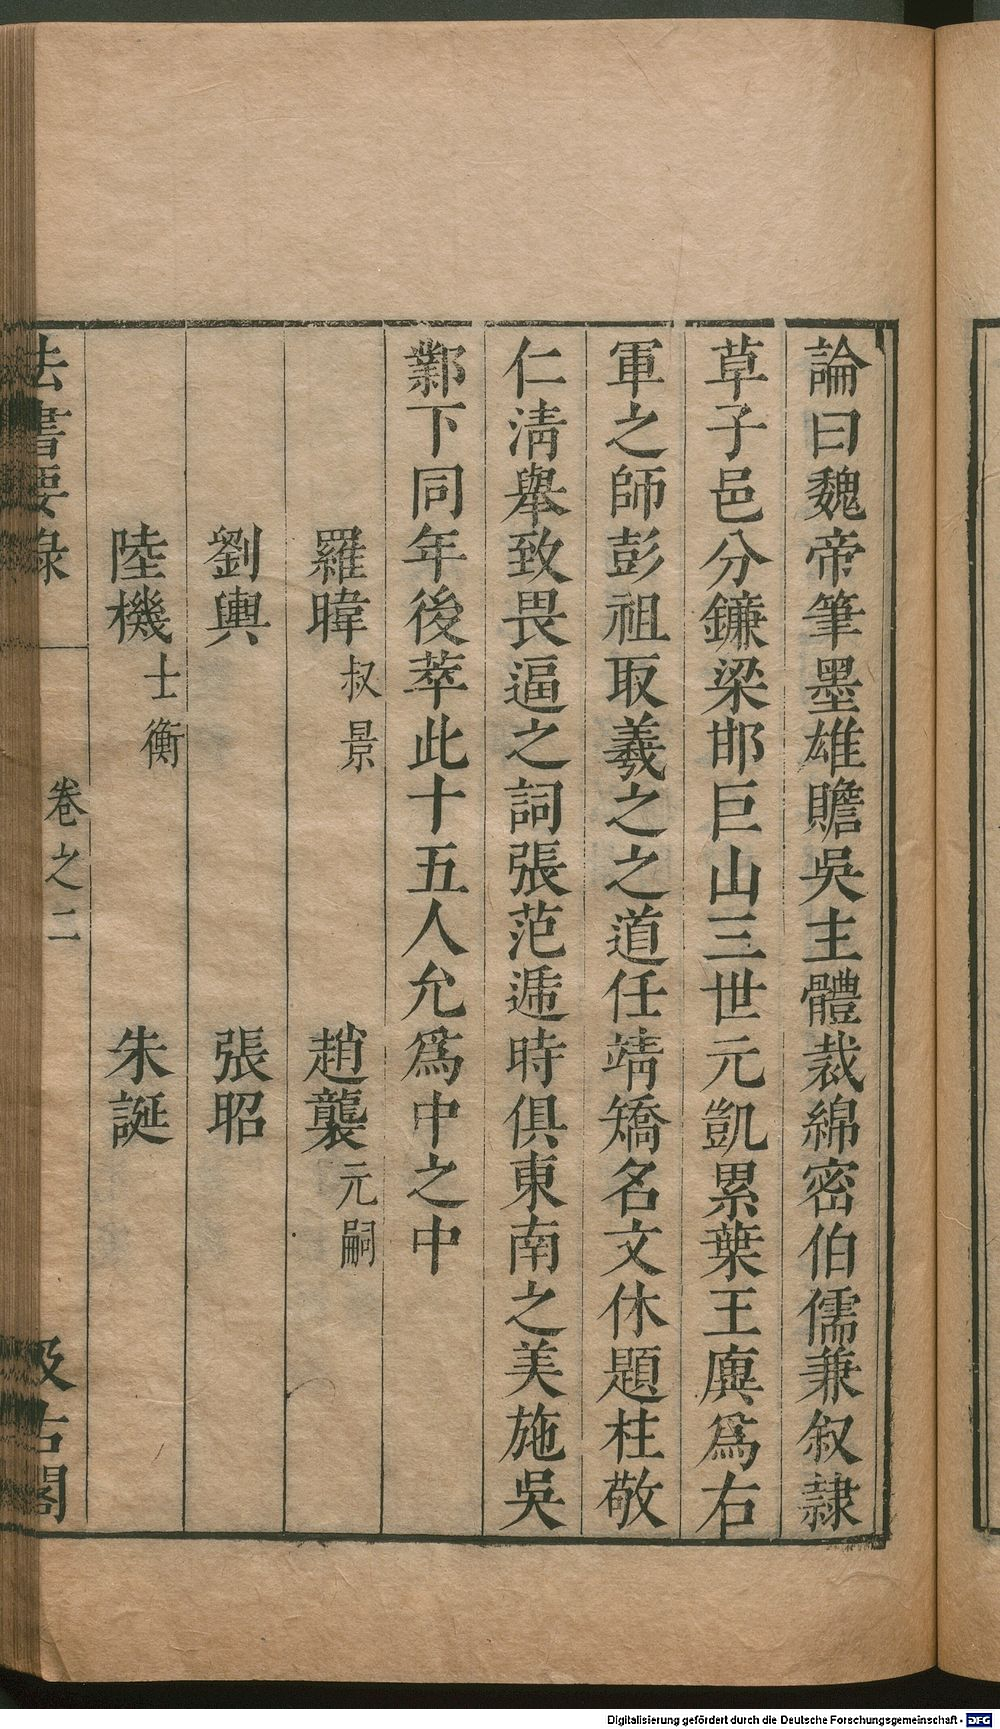 論曰魏帝筆墨雄贍吳主體裁綿密伯儒兼叙隷
草子邑分鑣梁邯巨山三世元凱累葉王廙爲右
軍之師彭祖取羲之之道任靖矯名文休題柱敬
仁清舉致畏逼之詞張范逓時俱東南之美施吳
鄴下同年後萃此十五人允爲中之中
羅暐 叔景 趙襲 元嗣
劉輿 張昭
陸機 士衡 朱誕
法書要錄 卷之二 汲古閣
Digitalisierung gefördert durch die Deutsche Forschungsgemeinschaft - DFG